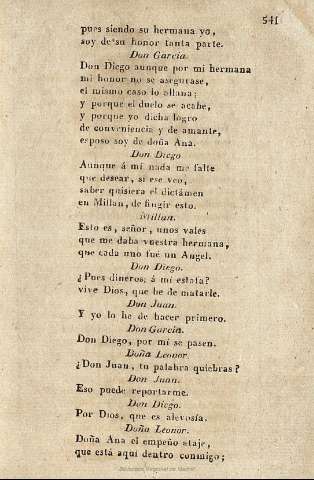 541
pues siendo su hermana yo,
soy de su honor tanta parte.
Don Garcia.
Don Diego aunque por mi hermana
mi honor no se asegurase,
el mismo caso lo allana;
y porque el duelo se acabe,
y porque yo dicha logro
de conveniencia y de amante,
esposo soy de doña Ana.
Don Diego
Aunque á mí nada me falte
que desear, si ese veo,
saber quisiera el dictámen
en Millan, de fingir esto.
Millan.
Esto es, señor, unos vales
que me daba vuestra hermana,
que cada uno fué un Angel.
Don Diego.
¿Pues dineros; á mi estafa?
vive Dios, que he de matarle.
Don Juan.
Y yo lo he de hacer primero.
Don Garcia.
Don Diego, por mí se pasen.
Doña Leonor.
¿Don Juan, tu palabra quiebras?
Don Juan.
Eso puede reportarme.
Don Diego.
Por Dios, que es alevosía.
Doña Leonor.
Doña Ana el empeño ataje,
que está aquí dentro conmigo;
Biblioteca Regional de Madrid